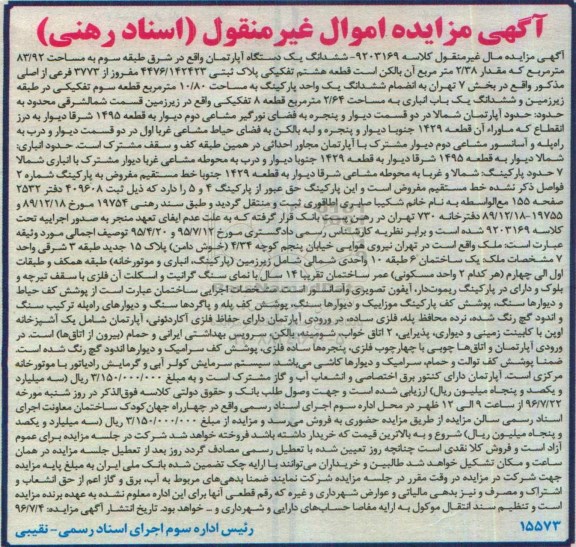 آگهی مزایده اموال غیرمنقول (اسناد رهنی)
آگهی مزایده مال غیرمنقول کلاسه ۹۲۰۳۱۶۹- ششدانگ یک دستگاه آپارتمان واقع در شرق طبقه سوم به مساحت ۸۳/۹۲
مترمربع که مقدار ۲/۳۸ متر مربع آن بالکن است قطعه هشتم تفکیکی پلاک ثبتی ۴۴۷۶/۱۴۲۴۲۳ مفروز از ۳۷۷۳ فرعی از اصلی
مذکور واقع در بخش ۷ تهران به انضمام ششدانگ یک واحد پارکینگ به مساحت ۱۰/۸۰ مترمربع قطعه سوم تفکیکی در طبقه
زیرزمین و ششدانگ یک باب انباری به مساحت ۲/۶۴ مترمربع قطعه ۸ تفکیکی واقع در زیرزمین قسمت شمالشرقی محدود به
حدود: حدود آپارتمان شمالا در دو قسمت دیوار و پنجره به فضای نورگیر مشاعی دوم دیوار به قطعه ۱۴۹۵ شرقا دیوار به درز
انقطاع که ماوراء آن قطعه ۱۴۲۹ جنوبا دیوار و پنجره و لبه بالکن به فضای حیاط مشاعی غربا اول در دو قسمت دیوار و درب به
راه‌پله و آسانسور مشاعی دوم دیوار مشترک با آپارتمان مجاور احداثی در همین طبقه کف و سقف مشترک است. حدود انباری:
شمالا دیوار به قطعه ۱۴۹۵ شرقا دیوار به قطعه ۱۴۲۹ جنوبا دیوار و درب به محوطه مشاعی غربا دیوار مشترک با انباری شمالا
۷ حدود پارکینگ: شمالا و غربا به محوطه مشاعی شرقا دیوار به قطعه ۱۴۲۹ جنوبا خط مستقیم مفروض به پارکینگ شماره ۲
فواصل ذکر نشده خط مستقیم مفروض است و این پارکینگ حق عبور از پارکینگ ۴ و ۵ را دارد که ذیل ثبت ۴۰۹۶۰۸ دفتر ۲۵۳۲
صفحه ۱۵۵ مع‌الواسطه به نام خانم شکیبا صابری اطاقوری ثبت و منتقل گردید و طبق سند رهنی ۱۹۷۵۴ مورخ ۸۹/۱۲/۱۸ و
۱۹۷۵۵-۸۹/۱۲/۱۸ دفترخانه ۷۳۰ تهران در رهن بانک قرار گرفته که به علت عدم ایفای تعهد منجر به صدور اجراییه تحت
کلاسه ۹۲۰۳۱۶۹ شده است و برابر نظریه کارشناس رسمی دادگستری مورخ ۹۵/۷/۱۲ و ۹۵/۴/۲۰ توصیف اجمالی مورد وثیقه
عبارت است: ملک واقع است در تهران نیروی هوایی خیابان پنجم کوچه ۴/۳۴ (خوش دامن) پلاک ۱۵ جدید طبقه ۳ شرقی واحد
۷ مشخصات ملک: یک ساختمان ۶ طبقه ۱۰ واحدی شمالی شامل زیرزمین (پارکینگ، انباری و موتورخانه) طبقه همکف و طبقات
اول الی چهارم (هر کدام ۲ واحد مسکونی) عمر ساختمان تقریبا ۱۴ سال با نمای سنگ گرانیت و اسکلت آن فلزی با سقف تیرچه و
بلوک و دارای در پارکینگ ریموت‌دار، آیفون تصویری و آسانسور است. مشخصات اجرایی ساختمان عبارت است از پوشش کف حیاط
و دیوارها سنگ، پوشش کف پارکینگ موزاییک و دیوارها سنگ، پوشش کف پله و پاگردها سنگ و دیوارهای راه‌پله ترکیب سنگ
و اندود گچ رنگ شده، نرده محافظ پله، فلزی ساده، در ورودی آپارتمان دارای حفاظ فلزی آکاردئونی، آپارتمان شامل یک آشپزخانه
اوپن با کابینت زمینی و دیواری، پذیرایی، ۲ اتاق خواب شومینه، بالکن، سرویس بهداشتی ایرانی و حمام (بیرون از اتاق‌ها) است. در
ورودی آپارتمان و اتاق‌ها چوبی با چهارچوب فلزی، پنجره‌ها ساده فلزی، پوشش کف سرامیک و دیوارها اندود گچ رنگ شده است.
ضمنا پوشش کف توالت و حمام، سرامیک و دیوارها کاشی می‌باشد. سیستم سرمایش کولر آبی و گرمایش رادیاتور با موتورخانه
مرکزی است. آپارتمان دارای کنتور برق اختصاصی و انشعاب آب و گاز مشترک است و به مبلغ ۳/۱۵۰/۰۰۰/۰۰۰ ریال (سه میلیارد
و یکصد و پنجاه میلیون ریال) ارزیابی شده است و جهت وصول طلب بانک و حقوق دولتی کلاسه فوق‌الذکر در روز شنبه مورخه
۹۶/۷/۲۲ از ساعت ۹ الی ۱۲ ظهر در محل اداره سوم اجرای اسناد رسمی واقع در چهارراه جهان‌کودک ساختمان معاونت اجرای
اسناد رسمی سالن مزایده از طریق مزایده حضوری به فروش می‌رسد و مزایده از مبلغ ۳/۱۵۰/۰۰۰/۰۰۰ ریال (سه میلیارد و یکصد
و پنجاه میلیون ریال) شروع و به بالاترین قیمت که خریدار داشته باشد فروخته خواهد شد شرکت در جلسه مزایده برای عموم
آزاد است و فروش کلا نقدی است چنانچه روز تعیین شده با تعطیل رسمی مصادف گردد روز بعد از تعطیل جلسه مزایده در همان
ساعت و مکان تشکیل خواهد شد طالبین و خریداران می‌توانند با ارایه چک تضمین شده بانک ملی ایران به مبلغ پایه مزایده
جهت شرکت در مزایده در وقت مقرر در جلسه مزایده شرکت نمایند ضمنا بدهی‌های مربوط به آب، برق و گاز اعم از حق انشعاب و
اشتراک و مصرف و نیز بدهی مالیاتی و عوارض شهرداری و غیره که رقم قطعی آنها برای این اداره معلوم نشده به عهده برنده مزایده
است و تنظیم سند انتقال موکول به ارایه مفاصا حساب‌های دارایی و شهرداری و ... خواهد بود. تاریخ انتشار آگهی مزایده: ۹۶/۷/۴
۱۵۵۷۳ رئیس اداره سوم اجرای اسناد رسمی- نقیبی